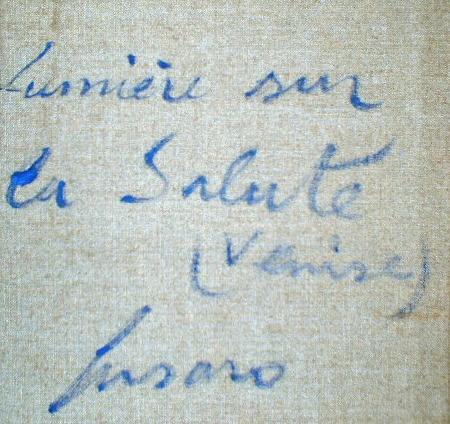 Lumière sur
La Salute
(Venise)
Fusaro